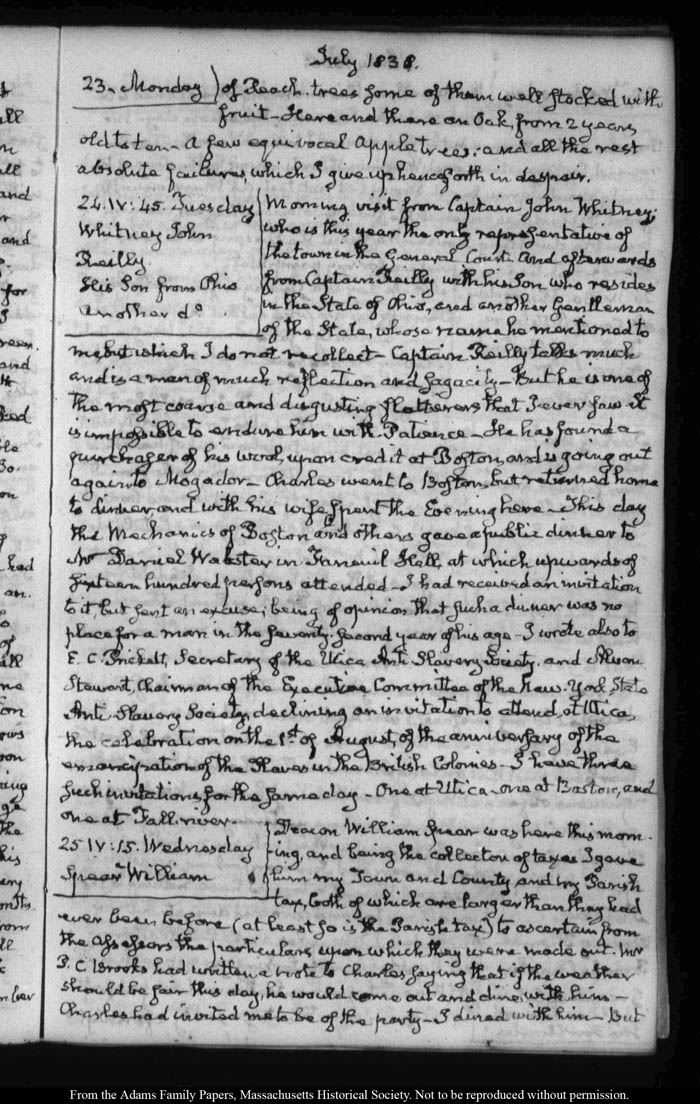 July 1838.
23. Monday) of Peach trees some of them well stocked with
fruit—Here and there an Oak, from 2 years
old to ten—A few equivocal Apple trees: and all the rest
absolute failures, which I give up henceforth in despair.
24. IV:45. Tuesday
Whitney John
Reilly.
His Son from Ohio
another do.
Morning visit from Captain John Whitney;
who is this year the only representative of
the town in the General Court. And afterwards
from Captain Reilly with his Son who resides
in the State of Ohio, and another Gentleman
of the State, whose name he mentioned to
me, but which I do not recollect—Captain Reilly talks much
and is a man of much reflection and sagacity—But he is one of
the most coarse and disgusting flatterers that I ever saw. It
is impossible to endure him with Patience—He has found a
purchaser of his wool, upon credit at Boston, and is going out
again to Mogador—Charles went to Boston, but returned home
to dinner, and with his wife spent the Evening here—This day
the Mechanics of Boston and others gave a public dinner to
Mr Daniel Webster in Faneuil Hall, at which upwards of
fifteen hundred persons attended—I had received an invitation
to it, but sent an excuse; being of opinion that such a dinner was no
place for a man in the seventy-second year of his age—I wrote also to
E. C. Pritchett, Secretary of the Utica Anti Slavery Society, and Alvan
Stewart, Chairman of the Executive Committee of the New-York State
Anti-Slavery Society, declining an invitation to attend, at Utica,
the celebration on the 1st of August, of the anniversary of the
emancipation of the Slaves in the British Colonies—I have three
such invitations, for the same day—One at Utica—one at Boston, and
one at Fall-river—
25 IV:15. Wednesday
Spear William
Deacon William Spear was here this morn-
ing, and being the collector of taxes I gave
him my Town and County and my Parish
tax, both of which are larger than they had
ever been before (at least so is the Parish tax) to ascertain from
the Assessors the particulars upon which they were made out. Mr
P. C. Brooks had written a note to Charles saying that if the weather
should be fair this day, he would come out and dine with him—
Charles had invited me to be of the party—I dined with him—But
From the Adams Family Papers, Massachusetts Historical Society. Not to be reproduced without permission.